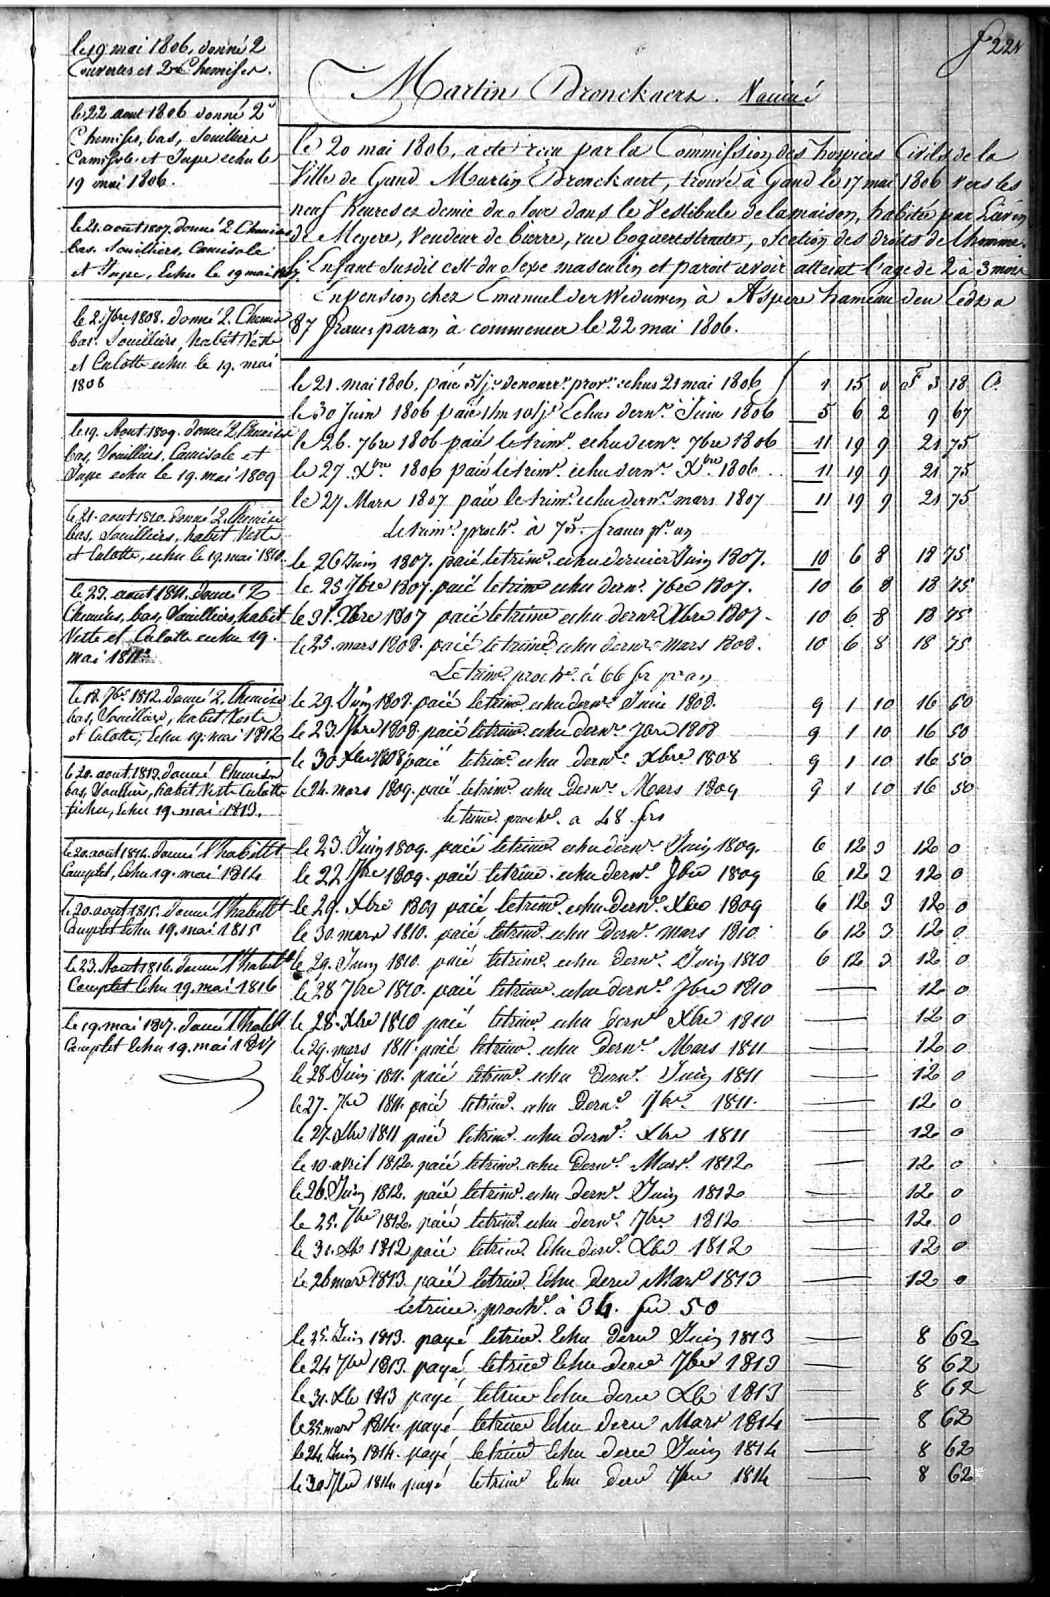 le 19 mai 1806, donné 2
Couvertes et 2 Chemises.
le 22 aout 1806 donné 2
Chemises, bas, Souilliers
Camisole et Jupe echu le
19 mai 1806.
le 21 aout 1807. donné 2 Chemises
bas. Souilliers, Camisole
et Jupe, Echu le 19 mai 1807
le 2. 7bre 1808. donné 2. Chemises
bas. Souilliers, habit Veste
et Culotte echu le 19. mai
1808
le 19. Aout 1809. donné 2 Chemises
bas, Souilliers, Camisole et
Jupe echu le 19. mai 1809
le 21. aout 1810. donné 2 Chemises
bas, Souilliers, habit Veste
et Culotte, echu le 19. mai 1810.
le 23. aout 1811. donné 2
Chemises, bas, Souilliers, habit
Veste et Culotte echu 19.
mai 1811
le 18. 7bre 1812. donné 2. Chemises
bas, Souilliers, habit Veste
et Culotte, Echu 19. mai 1812
le 20. aout 1813. donné Chemises
bas, Souilliers, habit Veste Culotte
fichu, Echu 19. mai 1813.
le 20. aout 1814. donné l'habillt
Complet, Echu 19. mai 1814
le 20. aout 1815. donné l'habillt
Complet Echu 19. mai 1815
le 23. Aout 1816. donné l'habillt
Complet Echu 19. mai 1816
le 19. mai 1817. donné l'habillt
Complet Echu 19. mai 1817
fo 221
Martin Bronckaers.
le 20 mai 1806, acte recu par la Commission des hospices Civils de la
Ville de Gand Martin Bronckaert, trouvé à Gand le 17 mai 1806 vers les
neuf heures et demie du Soir dans le Vestibule de la maison, habitée par Liévin
de Meyere, Vendeur de bierre, rue, Section des droits de l'homme.
l'Enfant Susdit est du Sexe masculin et paroit avoir atteint l'age de 2 à 3 mois
En pension chez Emanuel der Weduwen à Aspere hameau den Eedt a
87 francs par an, à commencer le 22 mai 1806.
le 21. mai 1806, paié echus 21 mai 1806 1 15 0 F 3 18 C.
le 30 Juin 1806 paié Echus dernr. Juin 1806 5 6 2 9 67
le 26. 7bre 1806 paié le trimr. echu dernr. 7bre 1806 11 19 9 21 75
le 27. Xbre 1806 paié le trimr. echu dernr. Xbre 1806 11 19 9 21 75
le 27 Mars 1807 paié le trimr. echu dernr. mars 1807 11 19 9 21 75
le trimr. prochr. à 75 francs pr. an
le 26 Juin 1807. paié le trimr. echu dernier Juin 1807. 10 6 8 18 75
le 25 7bre 1807. paié le trimr echu dernr. 7bre 1807. 10 6 8 18 75
le 31. Xbre 1807 paié le trimr echu dernr Xbre 1807. 10 6 8 18 75
le 25. mars 1808. paié le trimr echu dernr mars 1808. 10 6 8 18 75
Le trimr. prochr. à 66 fr pr an
le 29. Juin 1808. paié le trimr. echu dernr. Juin 1808. 9 1 10 16 50
le 23. 7bre 1808. paié le trimr. echu dernr. 7bre 1808 9 1 10 16 50
le 30. Xbre 1808 paié le trimr. echu dernr. Xbre 1808 9 1 10 16 50
le 24. mars 1809. paié le trimr. echu dernr. Mars 1809 9 1 10 16 50
le trimr prochr. a 48 frs
le 23. Juin 1809. paié le trimr echu dernr. Juin 1809. 6 12 3 12 0
le 22 7bre 1809. paié le trimr. echu dernr. 7bre 1809 6 12 3 12 0
le 29. Xbre 1809 paié le trimr. echu dernr. Xbre 1809 6 12 3 12 0
le 30. mars 1810. paié le trimr. echu dernr. mars 1810. 6 12 3 12 0
le 29. Juin 1810. paié le trimr. echu dernr. Juin 1810 6 12 3 12 0
le 28 7bre 1810. paié le trimr. echu dernr. 7bre 1810 12 0
le 28. Xbre 1810 paié le trimr. echu dernr Xbre 1810 12 0
le 29. mars 1811. paié le trimr. echu dernr. Mars 1811 12 0
le 28. Juin 1811. paié le trimr. echu dernr. Juin 1811 12 0
le 27. 7bre 1811. paié le trimr. echu dernr. 7bre 1811. 12 0
le 27. Xbre 1811 paié le trimr. echu dernr. Xbre 1811 12 0
le 10. avril 1812. paié le trimr. echu dernr. Mars. 1812 12 0
le 26. Juin 1812. paié le trimr. echu dernr. Juin 1812 12 0
le 25. 7bre 1812. paié le trimr. echu dernr. 7bre 1812 12 0
le 31. Xbr 1812 paié le trimr Echu dernr. Xbr 1812 12 0
le 26 mars 1813. paié le trimr Echu dernr Mars 1813 12 0
le trimr. prochr. à 34. frs 50
le 25. Juin 1813. payé le trimr. Echu dernr Juin 1813 8 62
le 24 7bre 1813. payé le trimr Echu dernr 7bre 1813 8 62
le 31. Xbr 1813 payé le trimr Echu dernr Xbr 1813 8 62
le 25. mars 1814. payé le trimr Echu dernr Mars 1814 8 62
le 24. Juin 1814. payé le trimr Echu dernr Juin 1814 8 62
le 30. 7bre 1814 payé le trimr Echu dernr 7bre 1814 8 62